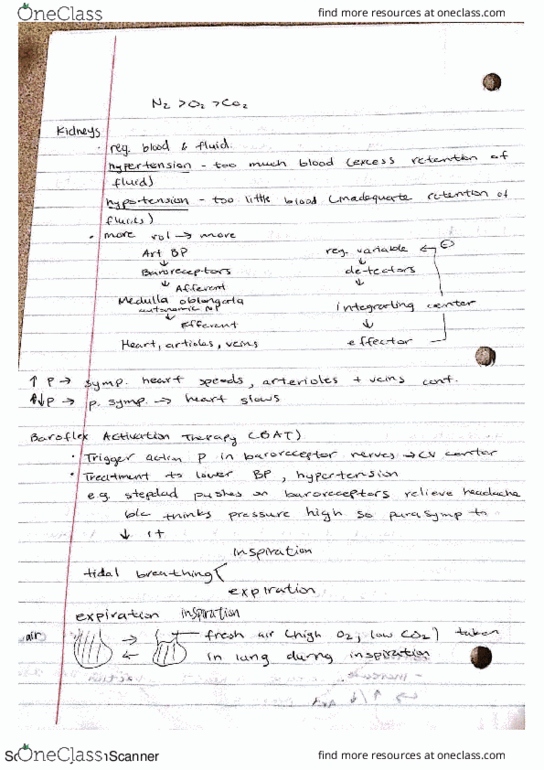 OneClass
find more resources at oneclass.com
N2 > O2 > CO2
Kidneys
• reg. blood & fluid.
hypertension - too much blood (excess retention of
fluid)
hypotension - too little blood (inadequate retention of
fluids)
• more vol → more
Art BP
↓
Baroreceptors
↓ Afferent
Medulla oblongata
autonomic
↓ Efferent
Heart, artioles, veins
reg. variable ← ⊖
↓
detectors
↓
integrating center
↓
effector
↑ P → symp. heart speeds, arterioles + veins cont.
P → p. symp. → heart slows
Baroflex Activation Therapy (BAT)
• Trigger action P in baroreceptor nerves → CV center
• Treatment to lower BP, hypertension
e.g. stepdad pushes on baroreceptors relieve headache
b/c thinks pressure high so parasymp to
↓ it
inspiration
tidal breathing
expiration
expiration inspiration
air → ← fresh air (high O2, low CO2) taken
in lung during inspiration
OneClass
Scanner
find more resources at oneclass.com